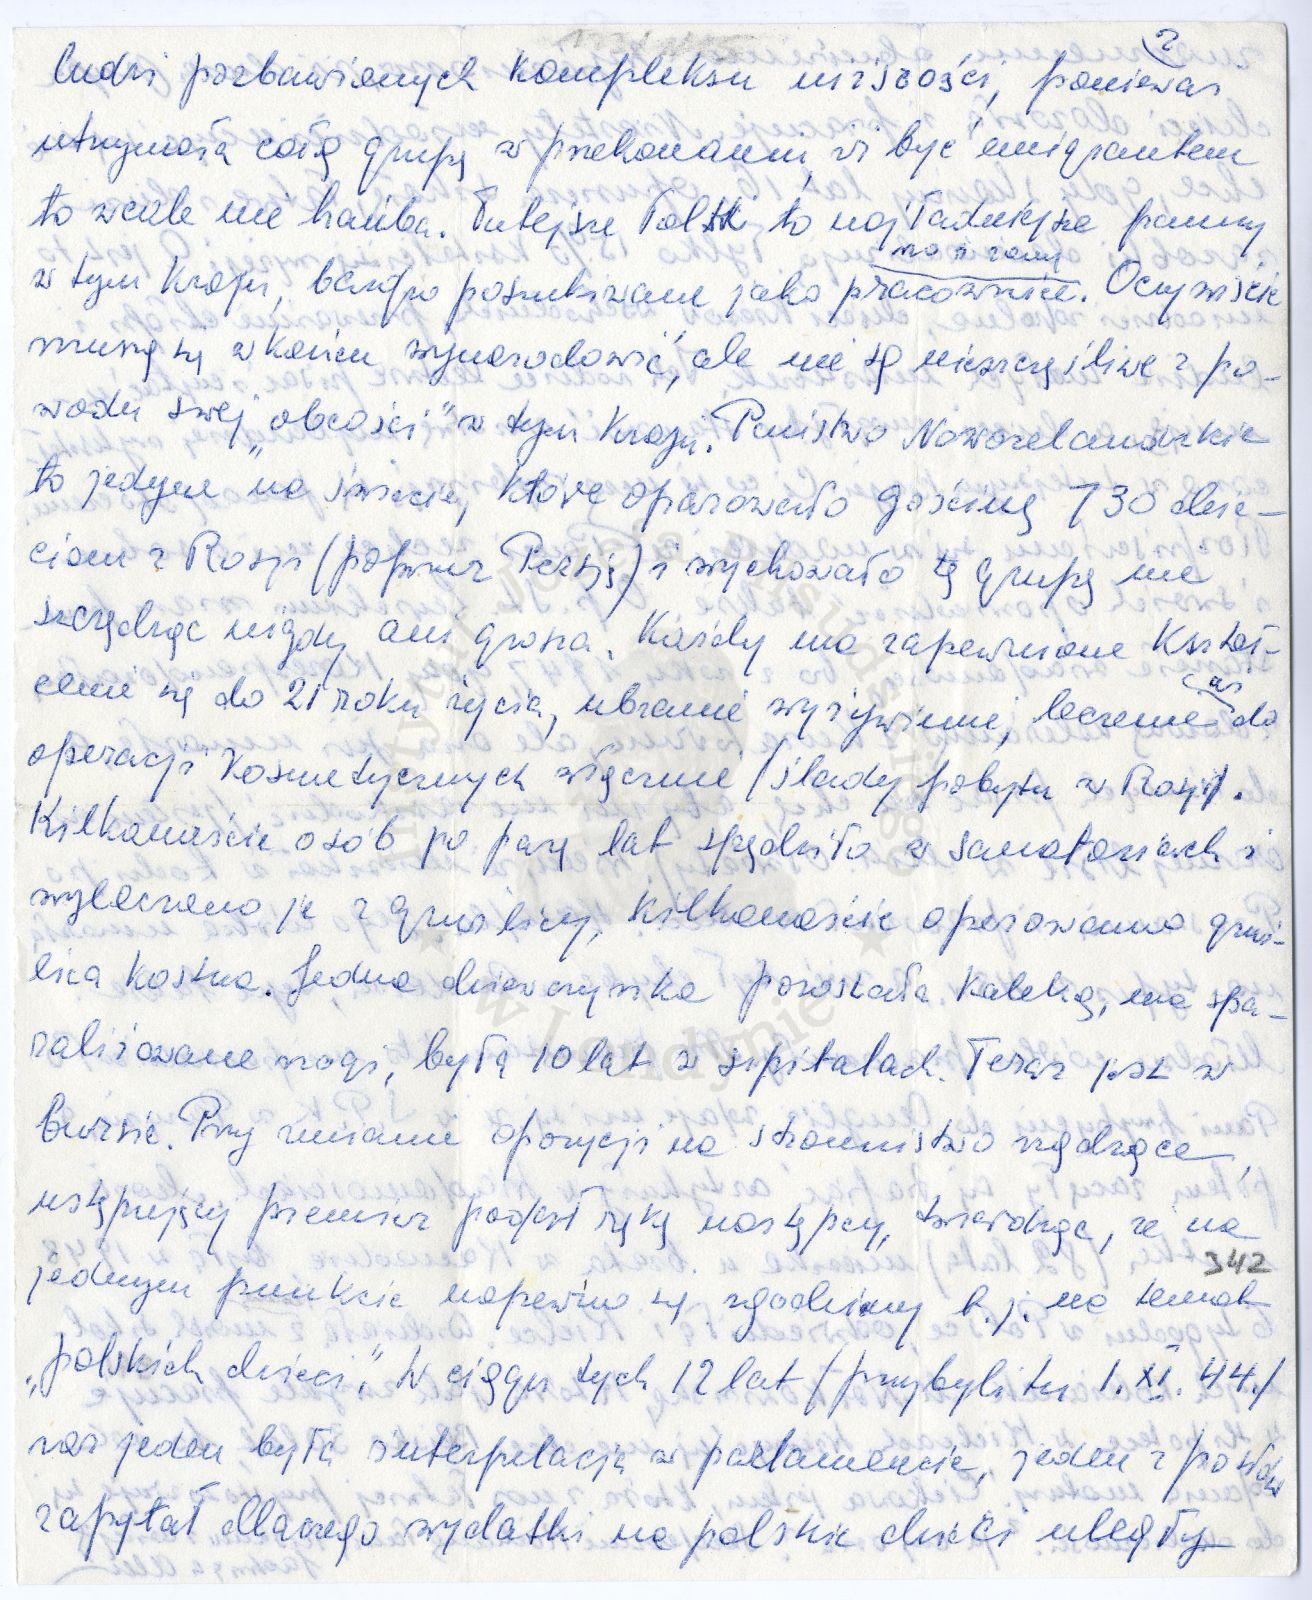 2
ludzi pozbawionych kompleksu niższości, ponieważ
utrzymała całą grupę w przekonaniu, iż być emigrantem
to wcale nie hańba. Tutejsze Polki to najładniejsze panny
na żony
w tym kraju, bardzo poszukiwane jako pracownice. Oczywiście
muszą się w końcu wynarodowić, ale nie są nieszczęśliwe z po-
wodu swej „obcości" w tym kraju. Państwo Nowozelandzkie
to jedyne na świecie, które ofiarowało gościnę 730 dzie-
ciom z Rosji (poprzez Persję) i wychowało tę grupę nie
szczędząc nigdy ani grosza. Każdy ma zapewnione kształ-
cenie się do 21 roku życia, ubranie wyżywienie, leczenie aż do
operacji kosmetycznych włącznie /ślady pobytu w Rosji/.
Kilkanaście osób po parę lat spędziło w sanatoriach i
wyleczono je z gruźlicy, kilkanaście operowano gruź-
lica kostna. Jedna dziewczynka pozostała kaleką, ma spa-
raliżowane nogi, była 10 lat w szpitalach. Teraz jest w
bursie. Przy zmianie opozycji na stronnictwo rządzące,
ustępujący premier podał rękę następcy, twierdząc, że na
342
jednym punkcie napewno się zgodzimy t.j. na temat
„polskich dzieci". W ciągu tych 12 lat /przybyli tu 1. XI. 44./
raz jeden była interpelacja w parlamencie, jeden z posłów
zapytał dlaczego wydatki na polskie dzieci uległy
Instytut Józefa Piłsudskiego
w Londynie